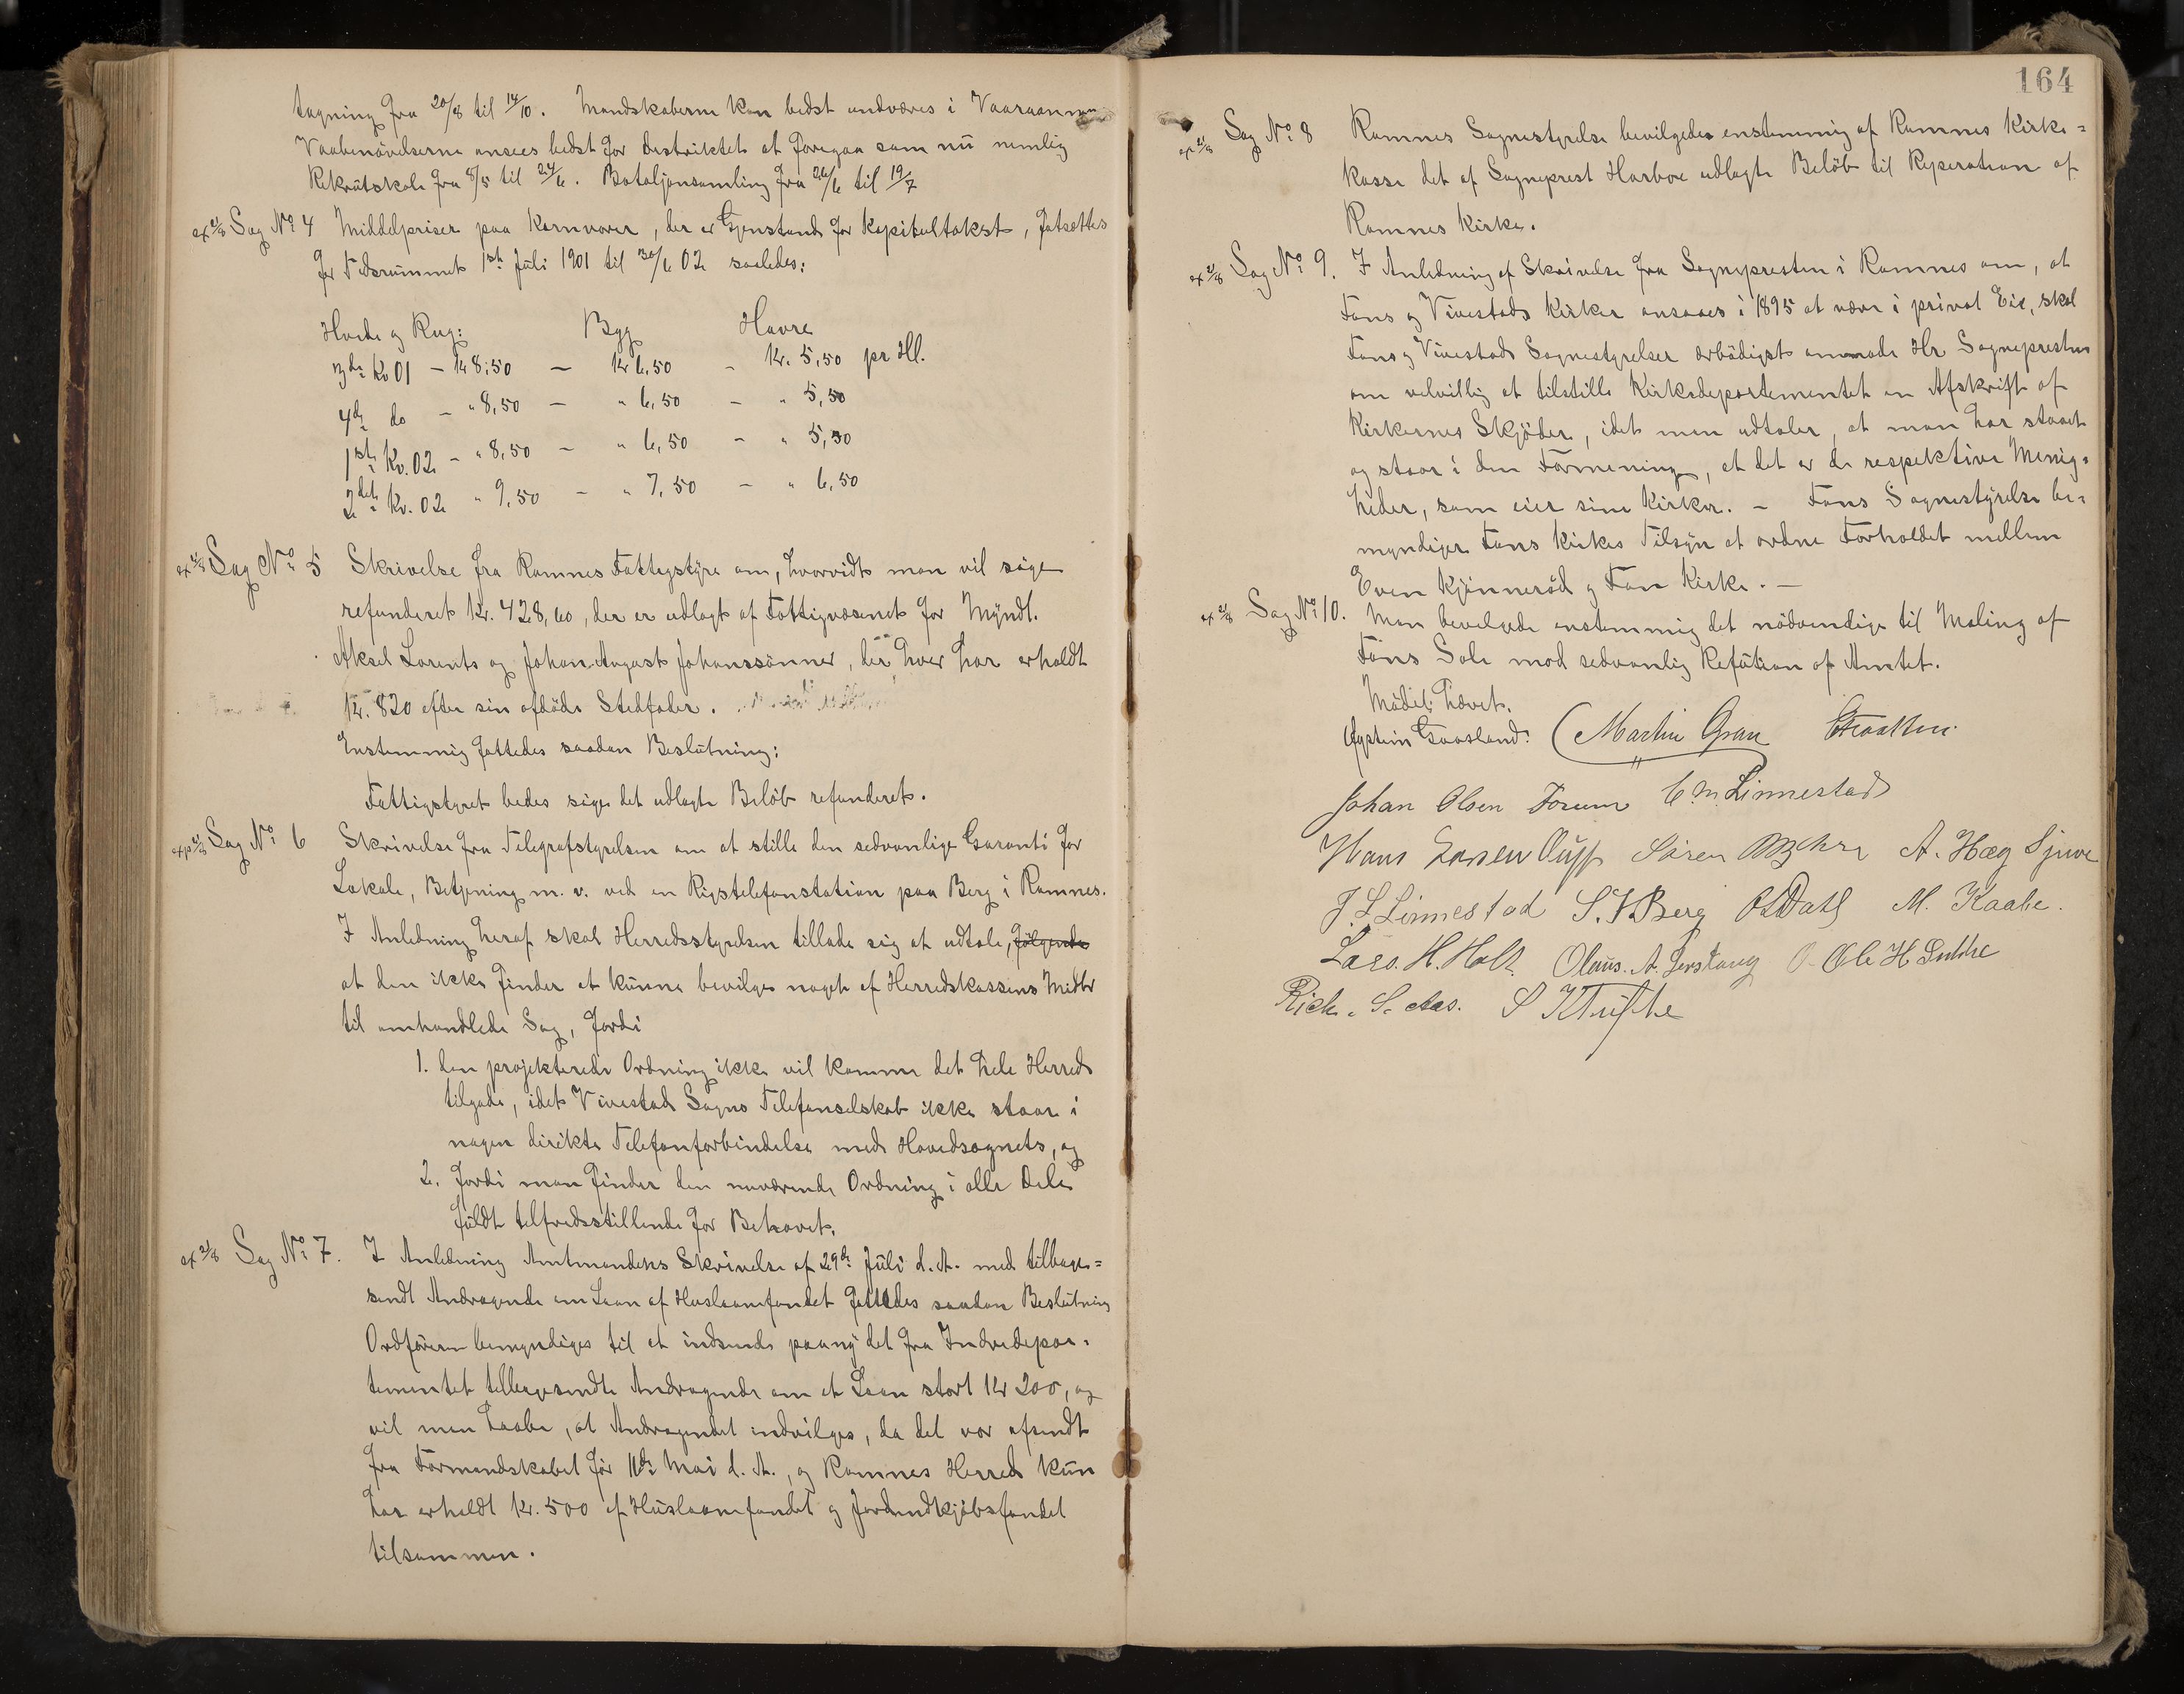 tagning fra 20/8 til 14/10. Mandskaberne kan bedst undværes i Vaaraannen
Vaabenövelserne ansees bedst for Destriktet at foregaa som nu nemlig
Rekrutskole fra 8/5 til 24/6. Bataljonsamling fra 26/6 til 19/7
Sag No 4 Middelpriser paa Kornvarer, der er Gjenstand for Kapitultakst, fatsættes
for Tidsrummet 1ste Juli 1901 til 30/6 02 saaledes:
Hvede og Rug: Byg Havre
3de Kv 01 – Kr 8,50 – Kr 6,50 – Kr. 5,50 pr Hl.
4de do – " 8,50 – " 6,50 – " 5,50
1ste Kv. 02 – " 8,50 – " 6,50 – " 5,50
2det Kv. 02 " 9,50 – " 7,50 – " 6,50
Sag No 5 Skrivelse fra Ramnes Fattigstyre om, hvorvidt man vil söge
refunderet Kr. 428,60, der er udlagt af Fattigvæsenet for Myndl.
Aksel Lorents og Johan August Johanssönner, der hver har erholdt
Kr. 820 efter sin afdöde Stedfader.
Enstemmig fattedes saadan Beslutning:
Fattigstyret bedes söge det udlagte Belöb refunderet.
Sag No 6 Skrivelse fra Telegrafstyrelsen om at stille den sedvanlige Garanti for
Lokale, Betjening m. v. ved en Rigstelefonstation paa Berg i Ramnes.
I Anledning heraf skal Herredsstyrelsen tillade sig at udtale, følgende
at den ikke finder at kunne bevilge noget af Herredskassens Midler
til omhandlede Sag, fordi
1. den projekterede Ordning ikke vil komme det hele Herred
tilgode, idet Vivestad Sogns Telefonselskab ikke staar i
nogen direkte Telefonforbindelse med Hovedsognets, og
2. fordi man finder den nuværende Ordning i alle Dele
fuldt tilfredsstillende for Behovet.
ex 2/8 Sag No 7. I Anledning Amtmandens Skrivelse af 29de Juli d. A. med tilbage=
sendt Andragende om Laan af Huslaanefondet fattedes saadan Beslutning
Ordföreren bemyndiges til at indsende paany det fra Indredepar=
tementet tilbagesendte Andragende om et Laan stort Kr 200, og
vil man haabe, at Andragendet indvilges, da det var afsendt
fra Formandskabet för 11te Mai d. A., og Ramnes Herred kun
har erholdt Kr. 500 af Huslaanefondet og Jordindkjöbsfondet
tilsammen.
164
ex 2/8 Sag No 8 Ramnes Sognestyrelse bevilgedes enstemmig af Ramnes Kirke=
kasse det af Sogneprest Harboe udlagte Belöb til Reperation af
Ramnes Kirke.
ex 2/8 Sag No 9. I Anledning af Skrivelse fra Sognepresten i Ramnes om, at
Fons og Vivestads Kirker ansaaes i 1895 at være i privat Eie, skal
Fons og Vivestads Sognestyrelser ærbödigst anmode Hr Sognepresten
om velvillig at tilstille Kirkedepartementet en Afskrift af
Kirkernes Skjöder, idet man udtaler, at man har staaet
og staar i den Formening, at det er de respektive Menig=
heder, som eier sine Kirker. – Fons Sognestyrelse be=
myndiger Fons Kirkes Tilsyn at ordne Forholdet mellem
Even Kjönneröd og Fon Kirke. –
ex 2/8 Sag No 10. Man bevilgede enstemmig det nödvendige til Maling af
Fons Sole mod sedvanlig Refution af Amtet.
Mödet hævet.
Øystein Gaasland. Martin Gran
Johan Olsen Forum C. M. Linnestad
Hans Sören A. Hæg
J. L. Linnestad S. Berg Dahl M. Kaabe.
Lars. H. Holt. Olaus. A. Ole H
Rich. S. Aas. S